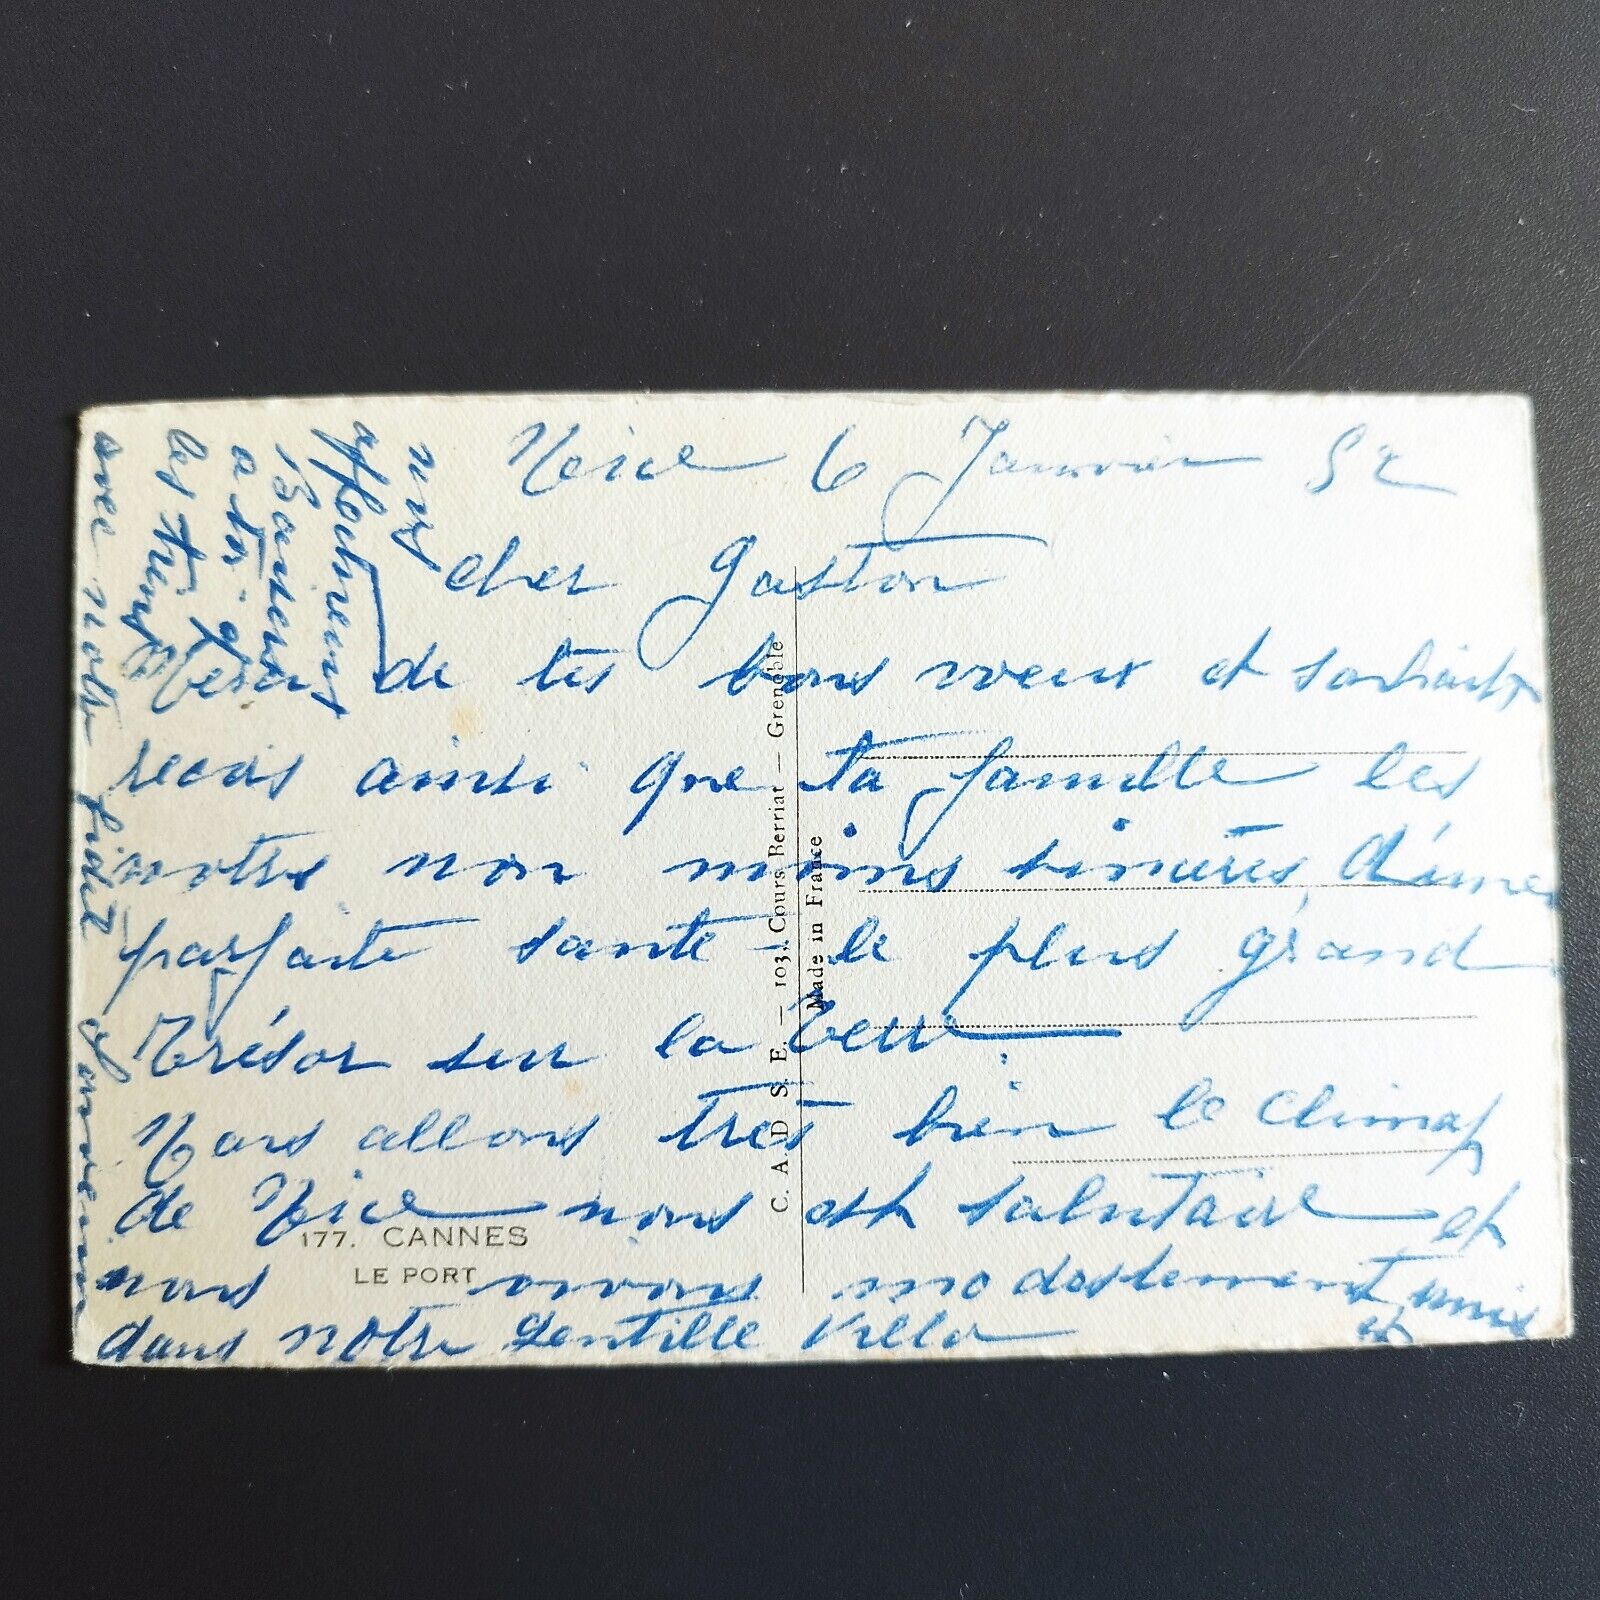 Nice 6 Janvier 52
cher Gaston
Merci de tes bons voeux et souhaits
recois ainsi que ta famille les
notres non moins sincères, d'une
parfaite santé le plus grand
Trésor sur la Terre
Nous allons très bien le climat
de Nice nous est salutaire et
nous vivons modestement, unis
dans notre Gentille Villa et
avec notre fidèle
les tiens
a toi
Baisers
affectueux
C. A. D. S. E. — 103, Cours Berriat — Grenoble
Made in France
177. CANNES
LE PORT